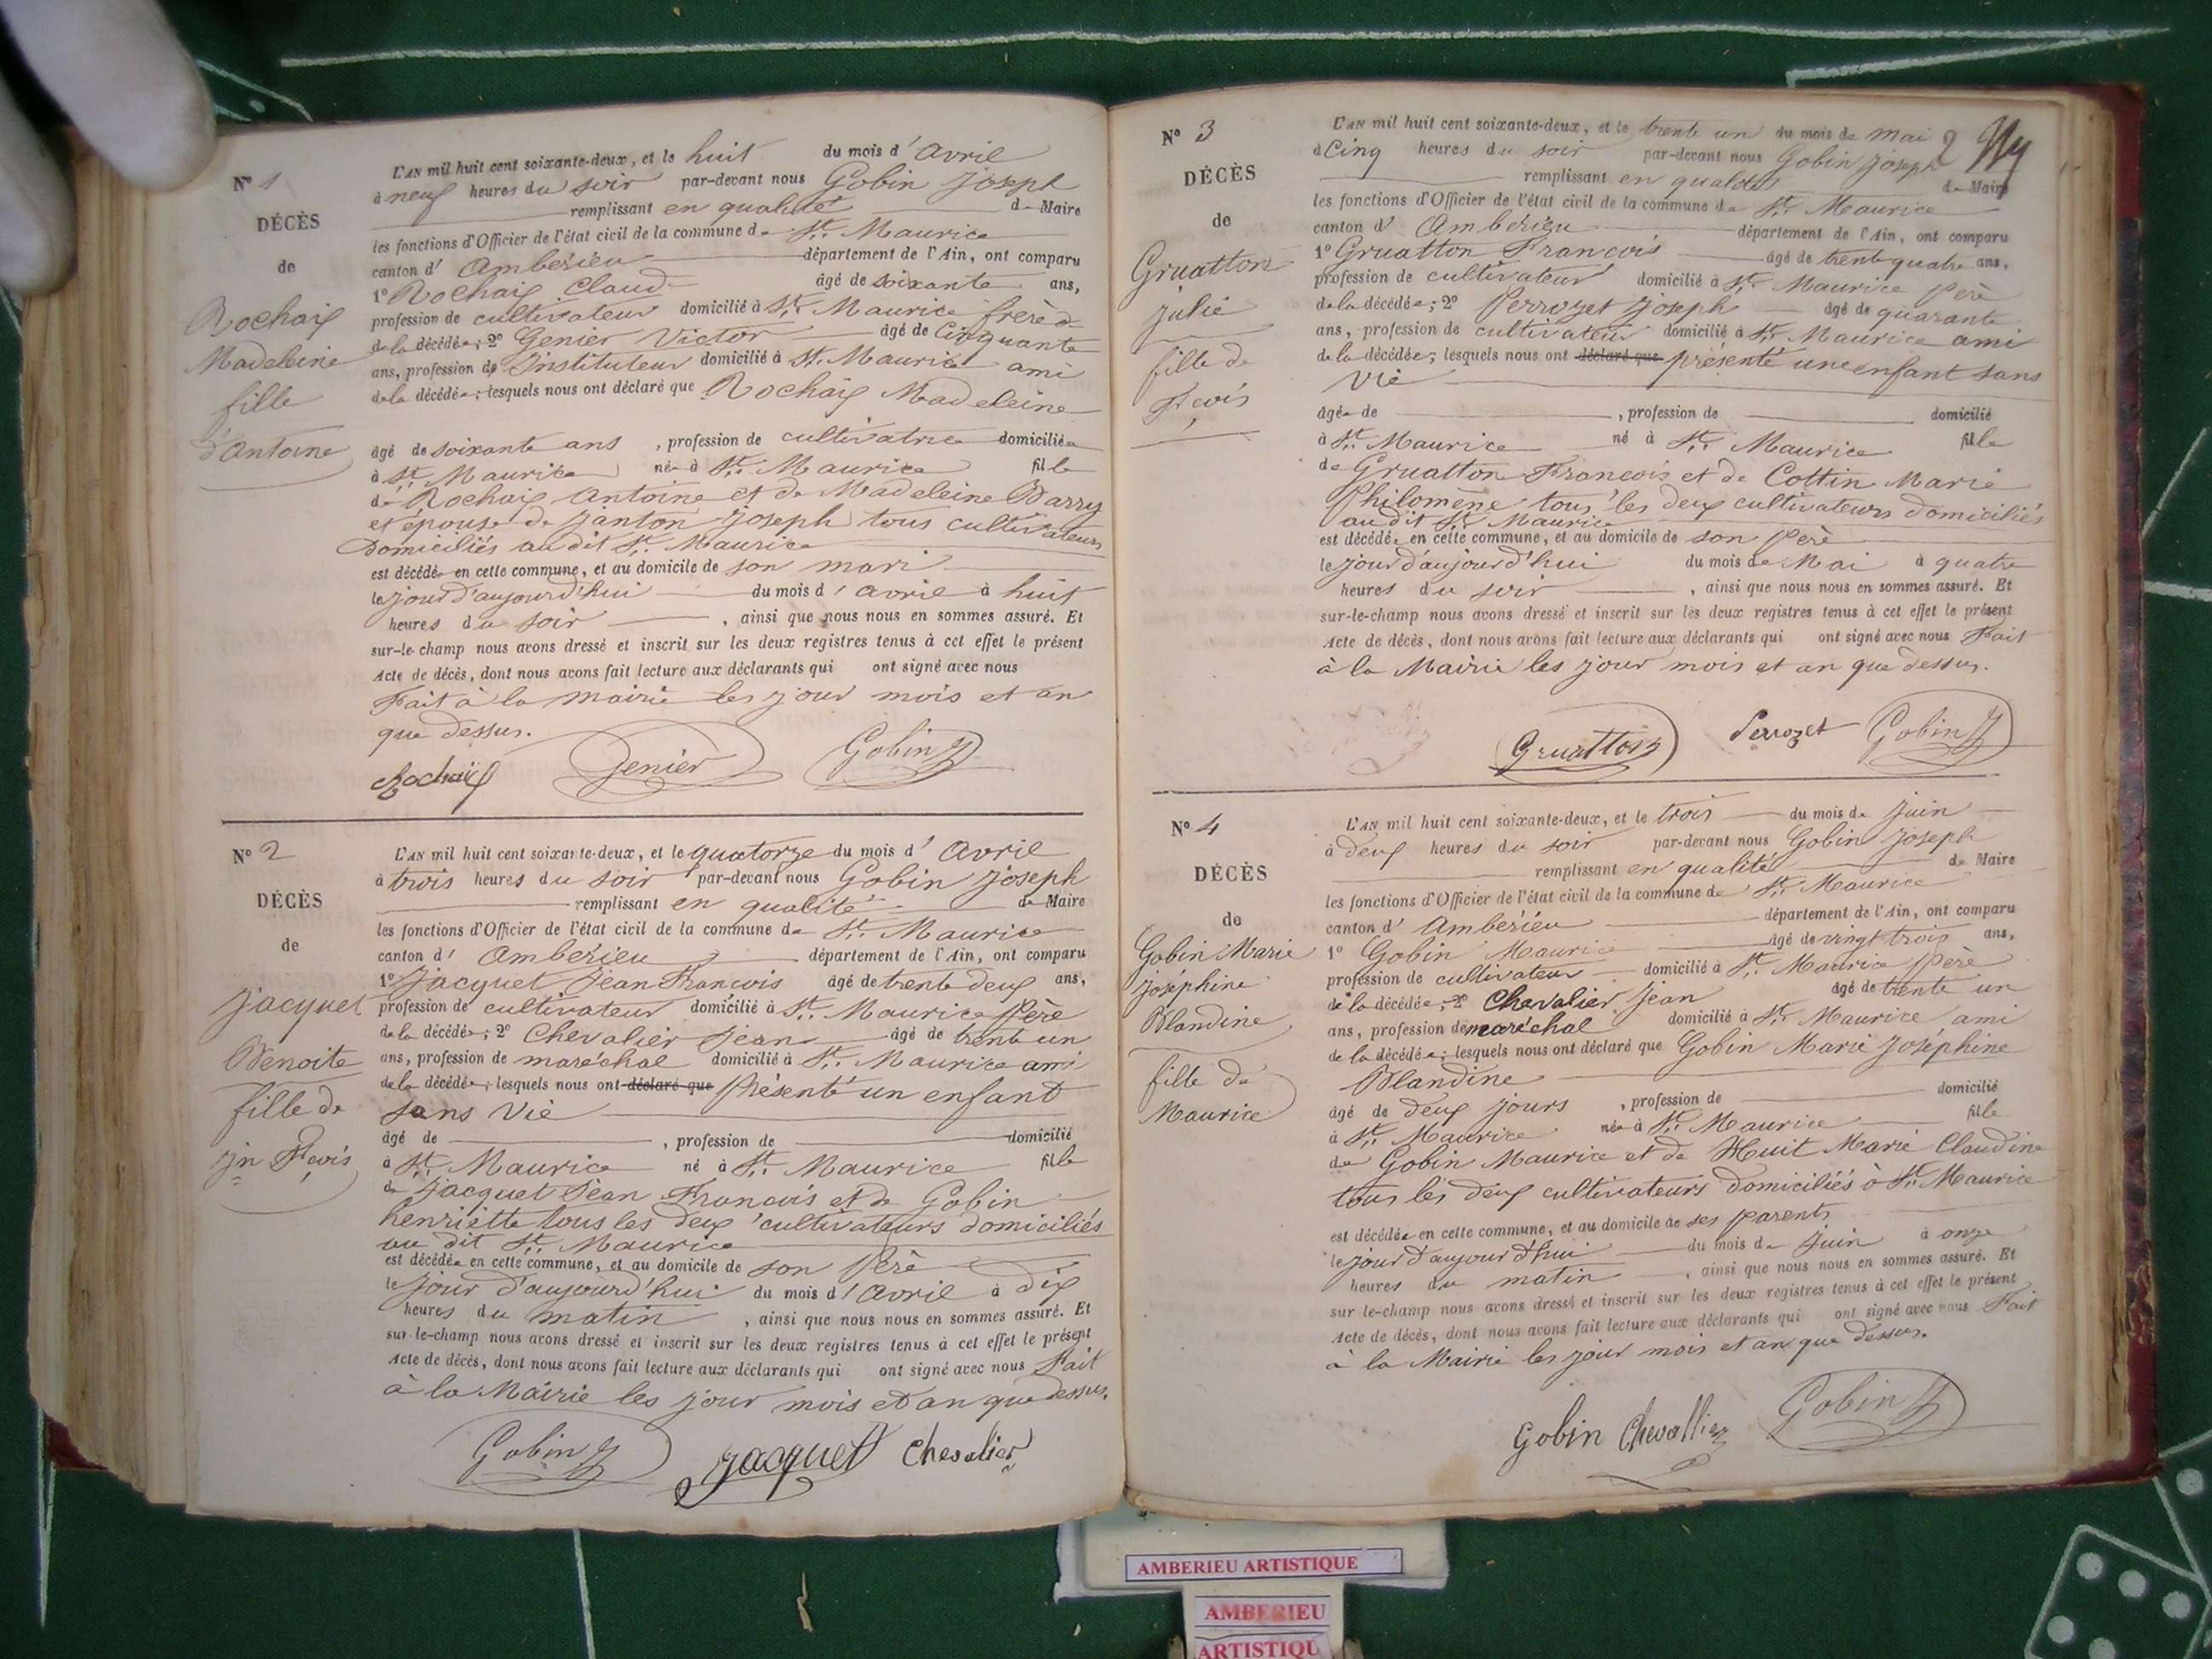 N° 1
DÉCÈS
de
Rochaix
Madeleine
fille
d'Antoine
L'AN mil huit cent soixante-deux, et le huit du mois d'Avril
à neuf heures du soir par-devant nous Gobin Joseph
remplissant en qualité de Maire
les fonctions d'Officier de l'état civil de la commune de St. Maurice
canton d'Ambérieu département de l'Ain, ont comparu
1° Rochaix Claude âgé de soixante ans,
profession de cultivateur domicilié à St. Maurice frère d
de la décédée; 2° Genier Victor âgé de Cinquante
ans, profession de Instituteur domicilié à St. Maurice ami
de la décédée; lesquels nous ont déclaré que Rochaix Madeleine
âgé de soixante ans, profession de cultivatrice domiciliée
à St. Maurice née à St. Maurice fille
de Rochaix Antoine et de Madeleine Barry
et épouse de Janton Joseph tous cultivateurs
Domiciliés au dit St. Maurice
est décédée en cette commune, et au domicile de son mari
le jour d'aujourd'hui du mois d'avril à huit
heures du soir, ainsi que nous nous en sommes assuré. Et
sur-le-champ nous avons dressé et inscrit sur les deux registres tenus à cet effet le présent
Acte de décès, dont nous avons fait lecture aux déclarants qui ont signé avec nous
Fait à la mairie les jour mois et an
que dessus.
Rochaix Genier Gobin J
N° 2
DÉCÈS
de
Jacquet
Benoite
fille de
jn Fcois
L'AN mil huit cent soixante-deux, et le quatorze du mois d'Avril
à trois heures du soir par-devant nous Gobin Joseph
remplissant en qualité de Maire
les fonctions d'Officier de l'état civil de la commune de St. Maurice
canton d'Ambérieu département de l'Ain, ont comparu
1° Jacquet Jean François âgé de trente deux ans,
profession de cultivateur domicilié à St. Maurice Père
de la décédée; 2° Chevalier Jean âgé de trente un
ans, profession de maréchal domicilié à St. Maurice ami
de la décédée; lesquels nous ont déclaré que Présenté un enfant
sans vie
âgé de , profession de domicilié
à St. Maurice né à St. Maurice fille
de Jacquet Jean François et de Gobin
henriette tous les deux cultivateurs domiciliés
au dit St. Maurice
est décédée en cette commune, et au domicile de son Père
le jour d'aujourd'hui du mois d'Avril à dix
heures du matin, ainsi que nous nous en sommes assuré. Et
sur-le-champ nous avons dressé et inscrit sur les deux registres tenus à cet effet le présent
Acte de décès, dont nous avons fait lecture aux déclarants qui ont signé avec nous Fait
à la Mairie les jour mois et an que dessus.
Gobin J Jacquet Chevalier
N° 3
DÉCÈS
de
Gruatton
julie
fille de
Fcois
L'AN mil huit cent soixante-deux, et le trente un du mois de mai 2
à Cinq heures du soir par-devant nous Gobin Joseph
remplissant en qualité de Maire
les fonctions d'Officier de l'état civil de la commune de St. Maurice
canton d'Ambérieu département de l'Ain, ont comparu
1° Gruatton François âgé de trente quatre ans,
profession de cultivateur domicilié à St. Maurice Père
de la décédée; 2° Perrozet Joseph âgé de quarante
ans, profession de cultivateur domicilié à St. Maurice ami
de la décédée; lesquels nous ont déclaré que présenté une enfant sans
vie
âgée de , profession de domicilié
à St. Maurice né à St. Maurice fille
de Gruatton François et de Cottin Marie
Philomène tous les deux cultivateurs domiciliés
au dit St. Maurice
est décédée en cette commune, et au domicile de son Père
le jour d'aujourd'hui du mois de Mai à quatre
heures du soir, ainsi que nous nous en sommes assuré. Et
sur-le-champ nous avons dressé et inscrit sur les deux registres tenus à cet effet le présent
Acte de décès, dont nous avons fait lecture aux déclarants qui ont signé avec nous Fait
à la Mairie les jour mois et an que dessus.
Gruatton Perrozet Gobin J
N° 4
DÉCÈS
de
Gobin Marie
joséphine
Blandine
fille de
Maurice
L'AN mil huit cent soixante-deux, et le trois du mois de Juin
à deux heures du soir par-devant nous Gobin Joseph
remplissant en qualité de Maire
les fonctions d'Officier de l'état civil de la commune de St. Maurice
canton d'Ambérieu département de l'Ain, ont comparu
1° Gobin Maurice âgé de vingt trois ans,
profession de cultivateur domicilié à St. Maurice Père
de la décédée; 2° Chevalier Jean âgé de trente un
ans, profession de maréchal domicilié à St. Maurice ami
de la décédée; lesquels nous ont déclaré que Gobin Marie Joséphine
Blandine
âgé de deux jours, profession de domicilié
à St. Maurice née à St. Maurice fille
de Gobin Maurice et de Huit Marie Claudine
tous les deux cultivateurs domiciliés à St. Maurice
est décédée en cette commune, et au domicile de ses parents
le jour d'aujourd'hui du mois de Juin à onze
heures du matin, ainsi que nous nous en sommes assuré. Et
sur le-champ nous avons dressé et inscrit sur les deux registres tenus à cet effet le présent
Acte de décès, dont nous avons fait lecture aux déclarants qui ont signé avec nous Fait
à la Mairie les jour mois et an que dessus.
Gobin Chevallier Gobin J
AMBERIEU ARTISTIQUE
AMBERIEU
ARTISTIQU